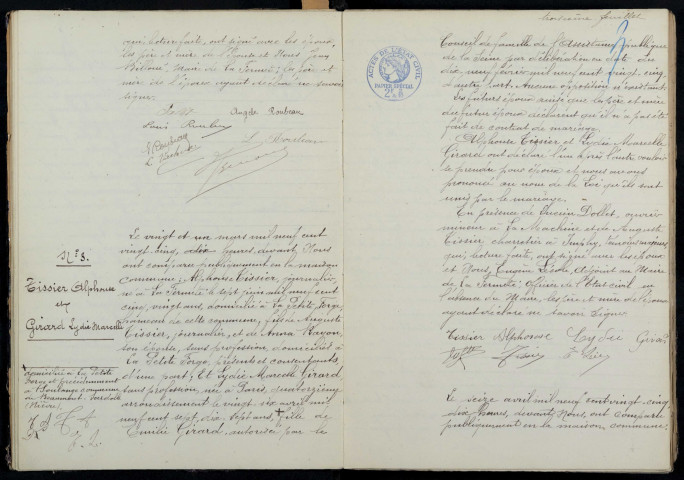 lecture faite, ont signé avec les époux,
les père et mère de l'époux et Nous Jean
Billoué, Maire de La Fermeté; les père et
mère de l'épouse ayant déclaré ne savoir
signer.
Angèle Rouleau
Louis
N° 8.
Tissier Alphonse
et
Girard Lydie Marcelle
domiciliée à La Petite
Forge et précédemment
à Boulange commune
de Beaumont-Sardolle
(Nièvre)
Le vingt et un mars mil neuf cent
vingt cinq, à dix heures, devant Nous
ont comparu publiquement en la maison
commune; Alphonse Tissier, journalier,
né à La Fermeté le sept juin mil neuf cent
cinq, vingt ans, domicilié à La Petite Forge,
hameau de cette commune, fils de Auguste
Tissier, journalier, et de Anna Rayon,
son épouse, sans profession, domiciliés à
La Petite Forge, présents et consentants,
d'une part; Et Lydie Marcelle Girard,
sans profession, née à Paris, quatorzième
arrondissement le vingt six avril mil
neuf cent sept, dix sept ans, fille de
Emilie Girard, autorisée par le
troisième feuillet
ACTES DE L'ÉTAT CIVIL
PAPIER SPÉCIAL
Conseil de famille de l'Assistance publique
de la Seine par délibération en date du
dix neuf février mil neuf cent vingt cinq,
d'autre part. Aucune opposition n'existant.
Les futurs époux ainsi que les père et mère
du futur époux déclarent qu'il n'a pas été
fait de contrat de mariage.
Alphonse Tissier et Lydie Marcelle
Girard ont déclaré l'un après l'autre vouloir
se prendre pour époux et nous avons
prononcé au nom de la Loi qu'ils sont
unis par le mariage.
En présence de Lucien Dollet, ouvrier
mineur à La Machine et de Auguste
Tissier, charretier à Imphy, témoins majeurs
qui, lecture faite, ont signé avec les époux
et Nous, Eugène Lesole, Adjoint au Maire
de La Fermeté, Officier de l'Etat civil en
l'absence du Maire, les père et mère de l'époux
ayant déclaré ne savoir signer.
Tissier Alphonse Lydie Girard
Le seize avril mil neuf cent vingt cinq
dix heures, devant Nous, ont comparu
publiquement en la maison commune: